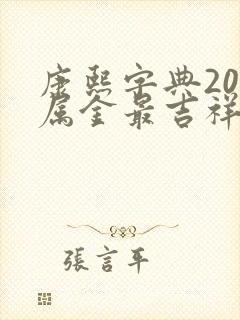 康熙字典20
属金最吉祥
張言平